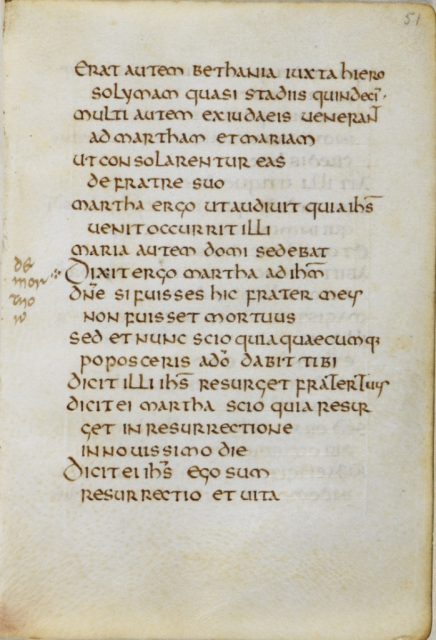 51
erat autem bethania iuxta hiero
solymam quasi stadiis quindeci̅·
multi autem ex iudaeis uenerant
ad martham et mariam
ut consolarentur eas
de fratre suo
martha ergo ut audiuit quia ih̅s
uenit occurrit illi
maria autem domi sedebat
de mortuo
Dixit ergo martha ad ih̅m
dn̅e si fuisses hic frater meus
non fuisset mortuus
sed et nunc scio quia quaecumq·
poposceris a do̅ dabit tibi
dicit illi ih̅s resurget frater tuus
dicit ei martha scio quia resur
get in resurrectione
in nouissimo die
Dicit ei ih̅s ego sum
resurrectio et uita